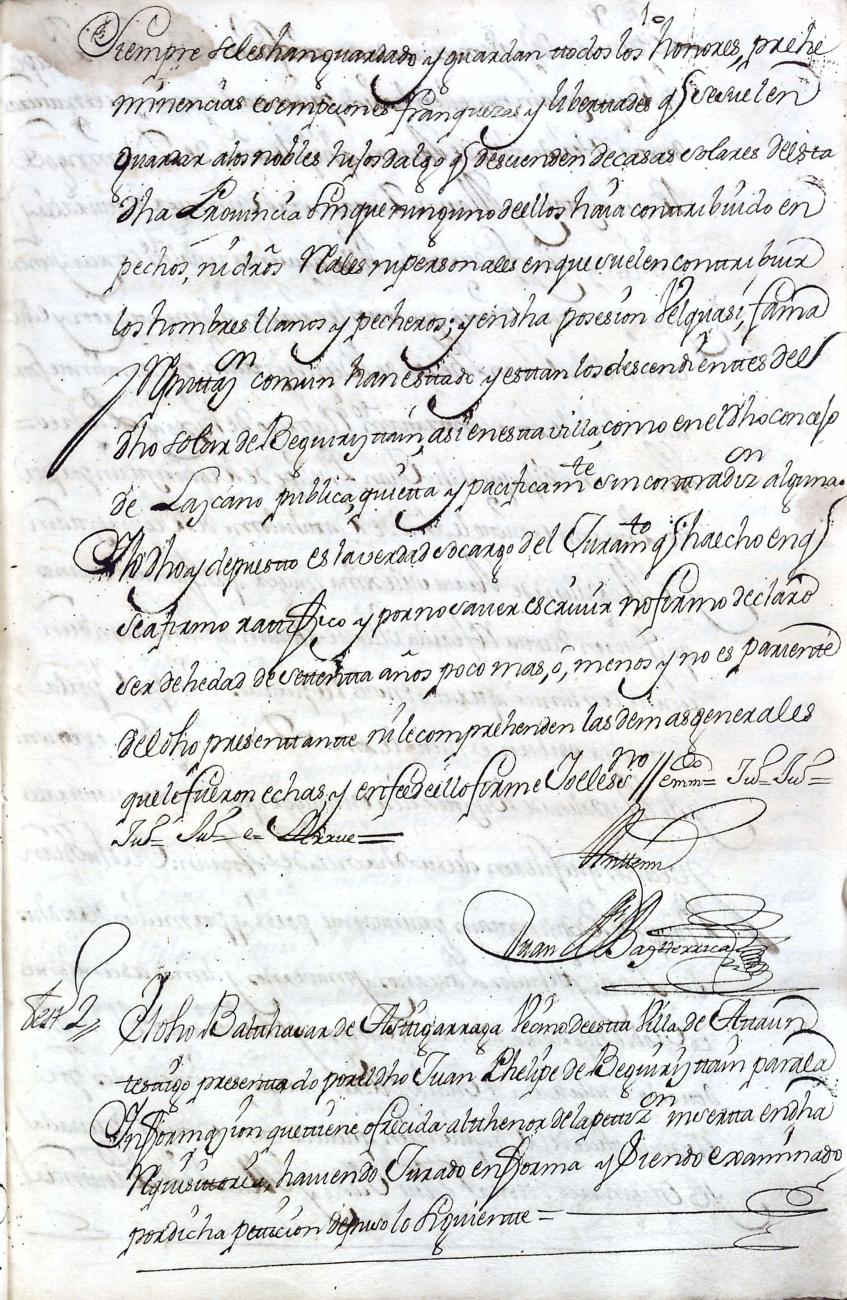 Siempre seles han guardado y guardan ttodos los honores, prehe
minencias esempciones franquezas y libertades q̃ sesuelen
guardar alos nobles hijosdalgo q̃ descienden decasas solares deesta
dha Provincia sinque ninguno deellos haia conttribuido en
pechos, ni dr̃os Rales ni personales en que suelen conttribuir
los hombres llanos y pecheros; y en dha posesion velquasi, fama
y Reputtaz.on comun han esttado y esttan los descendienttes del
dho solar de Beguiryttain, asi en estta villa, como en el dho concejo
de Lazcano publica, quietta y pacificam.te sin conttradiz.on alguna.
Y lo dho y depuestto es la verdad so cargo del Juram.to q̃ ha echo en q̃
seafirmo rattifico y por no saver escrivir no firmo declaro
ser de hedad de settentta años poco mas, ó, menos y no es pariente
del dho presenttantte ni le comprehenden las demas generales
que le fueron echas, y en fee de ello firme Yo el ess.no // emm.do=
Antte mi
Juan Baptt
Test.º 2
El dho Baltthasar de Asttigarraga Vecino de estta Villa de Attaun
testtigo presenttado por el dho Juan Phelipe de Beguiryttain para la
Informazion que ttiene ofrecida al tthenor de la pettiz.on insertta en dha
Requisittoria, haviendo Jurado en forma y Siendo examinado
por dicha peticion depuso lo Siguientte =